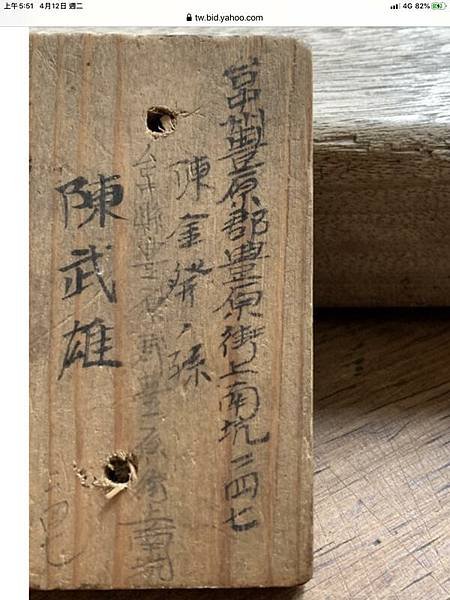 上午5:51 4月12日 週二
4G 82%
tw.bid.yahoo.com
台中州豊原郡豊原街上南坑二四七
陳金發ノ孫
陳武雄